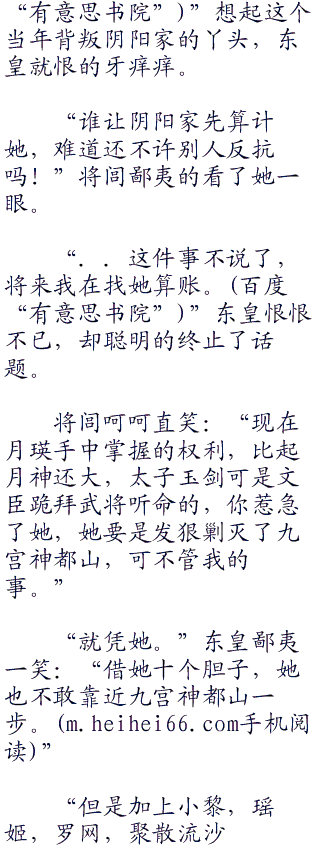 “有意思书院”)”想起这个
当年背叛阴阳家的丫头，东
皇就恨的牙痒痒。
“谁让阴阳家先算计
她，难道还不许别人反抗
吗！”将闾鄙夷的看了她一
眼。
“．．这件事不说了，
将来我在找她算账。(百度
“有意思书院”)”东皇恨恨
不已，却聪明的终止了话
题。
将闾呵呵直笑：“现在
月瑛手中掌握的权利，比起
月神还大，太子玉剑可是文
臣跪拜武将听命的，你惹急
了她，她要是发狠剿灭了九
宫神都山，可不管我的
事。”
“就凭她。”东皇鄙夷
一笑：“借她十个胆子，她
也不敢靠近九宫神都山一
步。(m.heihei66.com手机阅
读)”
“但是加上小黎，瑶
姬，罗网，聚散流沙